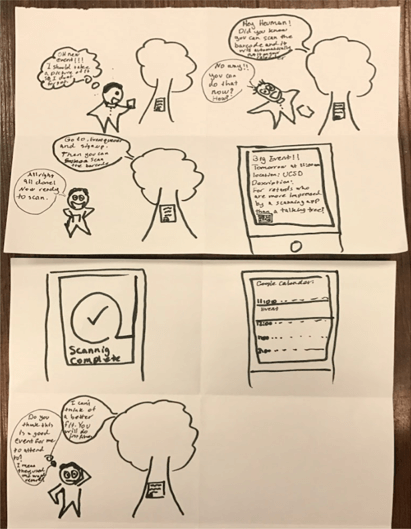 Oh new
event!!!
I should take
a picture of it
so I don't
forget.
Hey Heuman!
Did you know
you can scan the
barcode and it
will automatically
No way!!
You can
do that
now?
How?
Go to
and signup.
Then you can
scan
the barcode
Allright
all done!
Now ready
to scan.
Big Event!!
Tomorrow at
location: UCSD
Description:
For retards who
are more impressed
by a scanning app
than a talking tree!
Scannig
Complete
Google Calander:
11:00
Event
12:00
Do you
think this
is a good
event for me
to attend
to?
I mean
I can't
think of
a better
fit. You
will